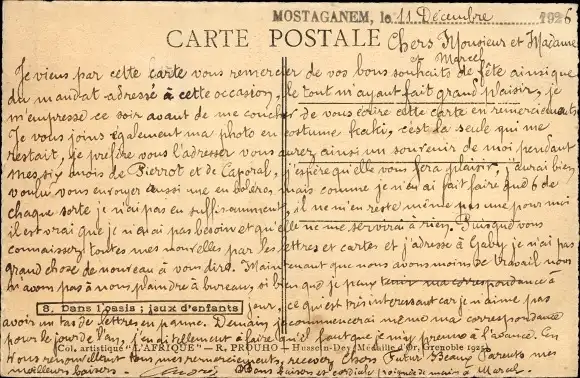 MOSTAGANEM, le 11 Décembre 1926
CARTE POSTALE
Chers Monsieur et Madame
et Marcel
Je viens par cette carte vous remercier de vos bons souhaits de fête ainsi que
du mandat adressé à cette occasion, le tout m'ayant fait grand plaisir, je
m'empresse ce soir avant de me coucher de vous écrire cette carte en remerciements
Je vous joins également ma photo en costume Kaki, c'est la seule qui me
restait, je préfère vous l'adresser vous aurez ainsi un souvenir de moi pendant
mes six mois de Pierrot et de Caporal, j'espère qu'elle vous fera plaisir, j'aurai bien
voulu vous envoyer aussi une en boléro, mais comme je n'en ai fait faire que 6 de
chaque sorte je n'ai pas en suffisamment, il ne m'en reste même pas une pour moi
il est vrai que je n'ai pas besoin et qu'elle ne me servirai à rien. Puisque vous
connaissez toutes mes nouvelles par les lettres et cartes et j'adresse à Gaby je n'ai pas
grand chose de nouveau à vous dire. Maintenant que nous avons moins de travail nous
n'avons pas à nous plaindre à bureau, si bien que je peux tenir ma correspondance à
8. Dans l'oasis ; jeux d'enfants
jour, ce qui est très intéressant car je n'aime pas
avoir un tas de lettres en panne. Demain je commencerai même ma correspondance
pour le jour de l'an, j'en ai tellement à faire qu'il faut que je m'y prenne à l'avance. En
Col. artistique "L'AFRIQUE" — R. PROUHO — Hussein-Dey, Médaille d'Or, Grenoble 1925
vous renouvellant tous mes remerciements, recevez Chers Futur Beaux Parents mes
meilleurs baisers. André Bons baisers et cordiale poignée de main à Marcel